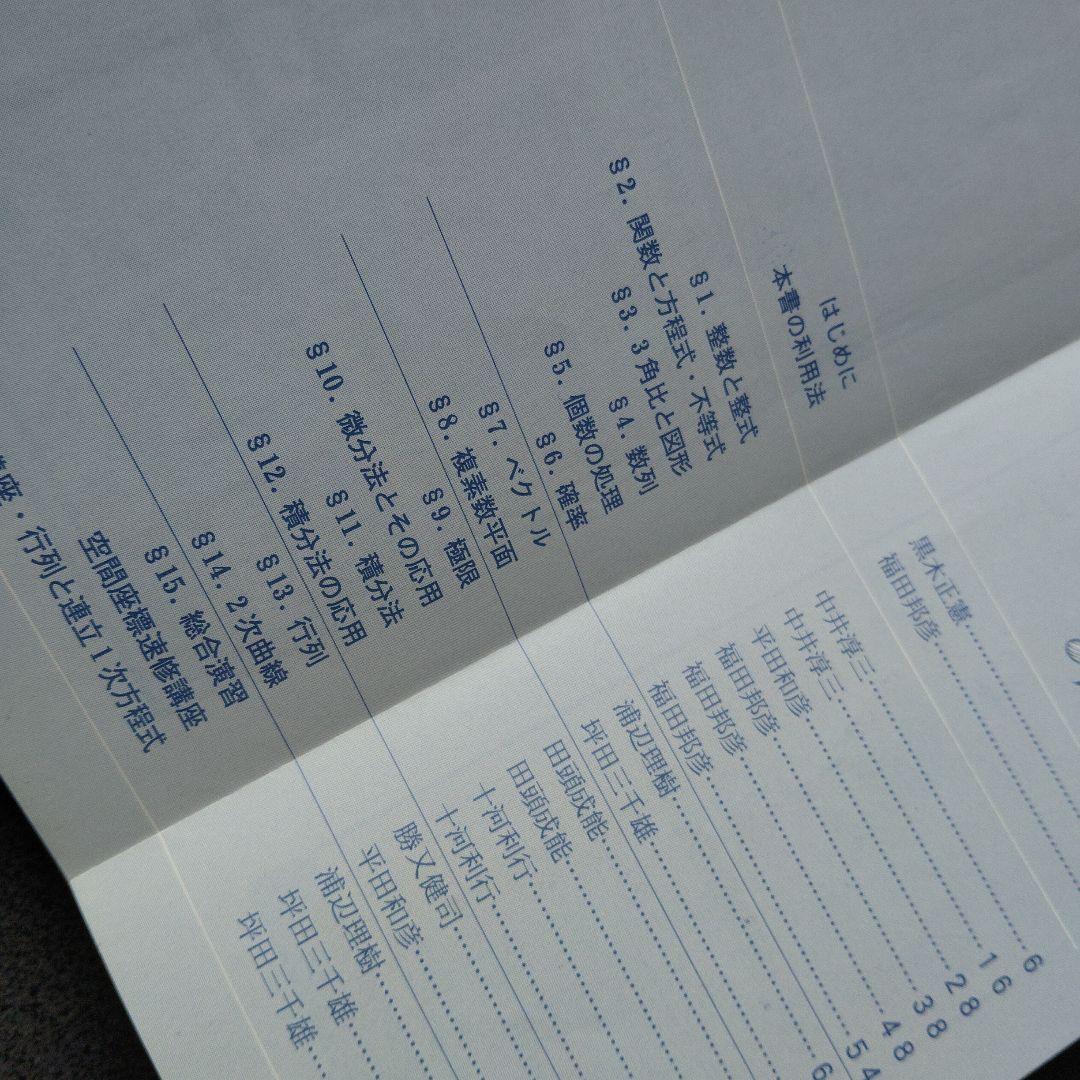 はじめに 黒木正憲……
本書の利用法 福田邦彦……
§1. 整数と整式 中井淳三……6
§2. 関数と方程式・不等式 中井淳三……16
§3. 3角比と図形 平田和彦……28
§4. 数列 福田邦彦……38
§5. 個数の処理 福田邦彦……48
§6. 確率 福田邦彦……54
§7. ベクトル 浦辺理樹……6
§8. 複素数平面 坪田三千雄……
§9. 極限 田頭成能……
§10. 微分法とその応用 田頭成能……
§11. 積分法 十河利行……
§12. 積分法の応用 十河利行……
§13. 行列 勝又健司……
§14. 2次曲線 平田和彦……
§15. 総合演習 浦辺理樹……
空間座標速修講座 坪田三千雄……
座・行列と連立1次方程式 坪田三千雄……